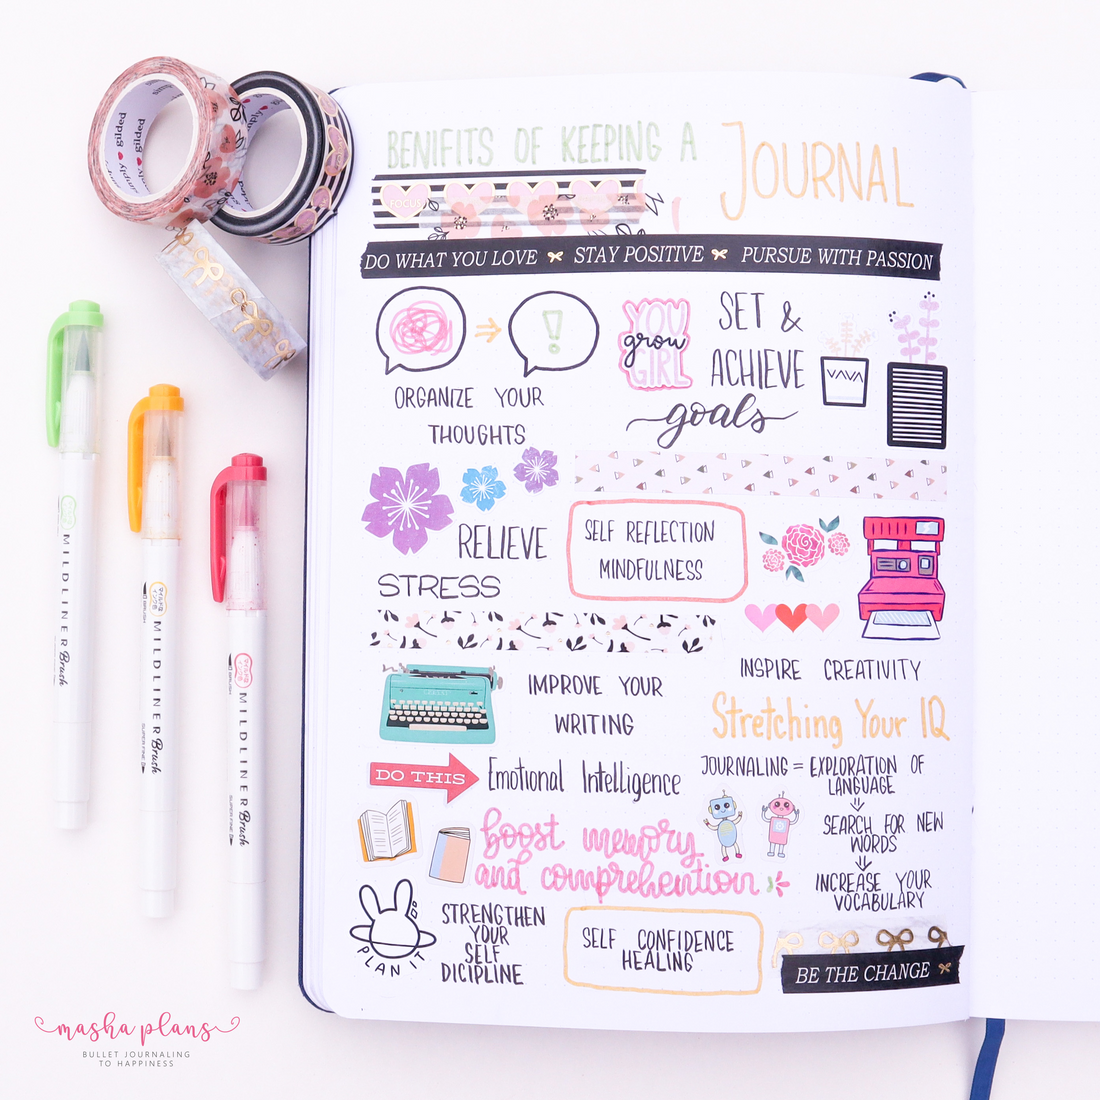 BENIFITS OF KEEPING A JOURNAL
FOCUS
DO WHAT YOU LOVE STAY POSITIVE PURSUE WITH PASSION
!
ORGANIZE YOUR
THOUGHTS
YOU
grow
GIRL
SET &
ACHIEVE
goals
RELIEVE
STRESS
SELF REFLECTION
MINDFULNESS
IMPROVE YOUR
WRITING
INSPIRE CREATIVITY
Stretching Your IQ
JOURNALING = EXPLORATION OF
LANGUAGE
SEARCH FOR NEW
WORDS
INCREASE YOUR
VOCABULARY
DO THIS
Emotional Intelligence
boost memory
and comprehention
PLAN IT
STRENGTHEN
YOUR
SELF
DICIPLINE
SELF CONFIDENCE
HEALING
BE THE CHANGE
simply gilded
MILDLINER Brush
MILDLINER Brush
MILDLINER Brush
masha plans
BULLET JOURNALING
TO HAPPINESS